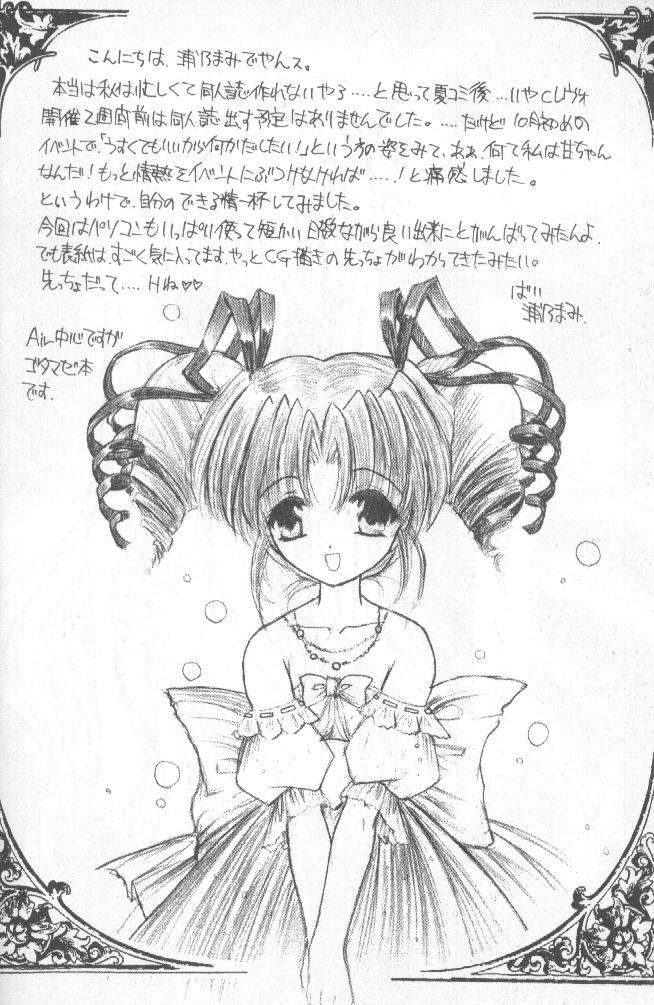 こんにちは、浦乃まみでやんス。
本当は私は忙しくて同人誌作れないやろ....と思って夏コミ後...いやCレヴォ
開催2週間前は同人誌出す予定はありませんでした。....だけど10月初めの
イベントで、「うすくてもいいから何かだしたい!」という方の姿をみて、あぁ、何て私は甘ちゃん
なんだ!もっと情熱をイベントにぶつけなければ....!と痛感しました。
というわけで、自分のできる精一杯してみました。
今回はパソコンもいっぱい使って短かい日数ながら良い出来にとがんばってみたんよ。
でも表紙は、すごく気に入ってます。やっとCG描きの先っちょがわかってきたみたい。
先っちょだって....Hね♡♡
ばい
浦乃まみ
Air中心ですが
ゴタマゼ本
です。